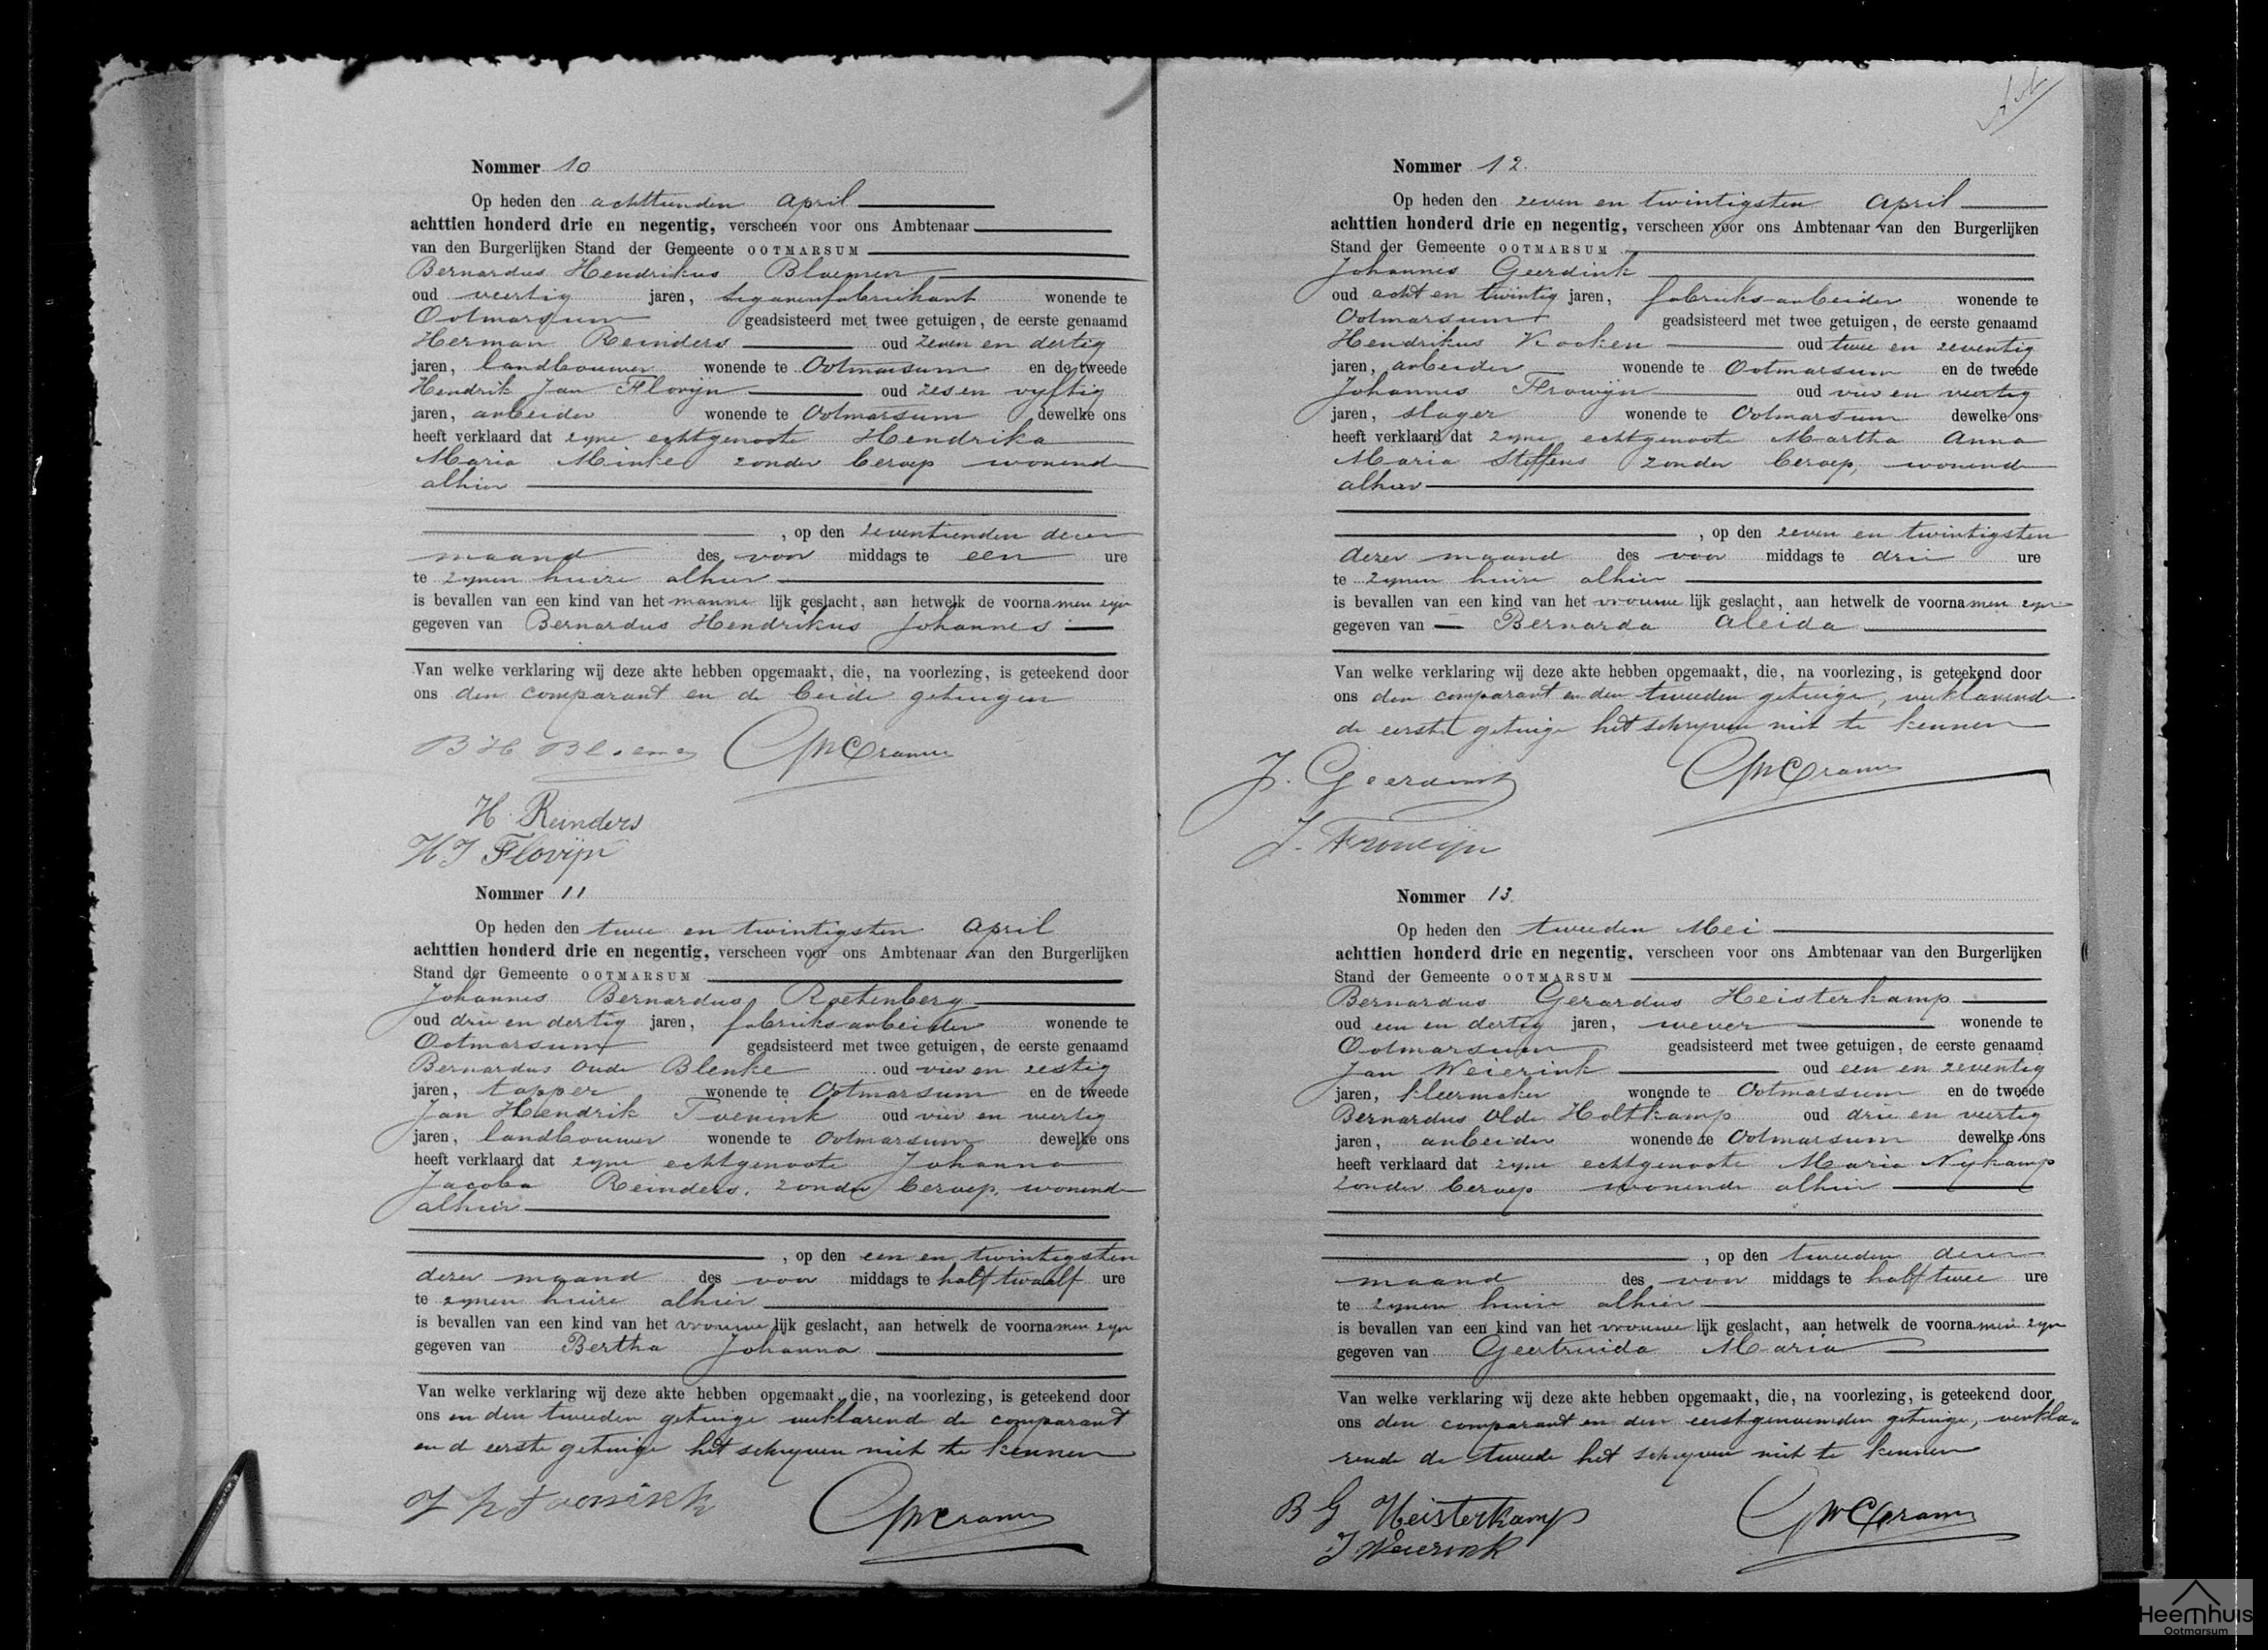 Nommer 10
Op heden den achttienden April
achttien honderd drie en negentig, verscheen voor ons Ambtenaar
van den Burgerlijken Stand der Gemeente OOTMARSUM
Bernardus Hendrikus Bloemen,
oud veertig jaren, sigarenfabriekant wonende te
Ootmarsum geadsisteerd met twee getuigen, de eerste genaamd
Herman Reinders oud zeven en dertig
jaren, landbouwer wonende te Ootmarsum en de tweede
Hendrik Jan Flovijn oud zes en vyftig
jaren, arbeider wonende te Ootmarsum dewelke ons
heeft verklaard dat zyne echtgenoote Hendrika
Maria Minke zonder beroep wonende
alhier
, op den zeventienden dezer
maand des voor middags te een ure
te zynen huize alhier
is bevallen van een kind van het manne lijk geslacht, aan hetwelk de voorna men zyn
gegeven van Bernardus Hendrikus Johannes
Van welke verklaring wij deze akte hebben opgemaakt, die, na voorlezing, is geteekend door
ons den comparant en de beide getuigen
B H Bloemen
H. Reinders
H J Flovijn
Nommer 11
Op heden den twee en twintigsten April
achttien honderd drie en negentig, verscheen voor ons Ambtenaar van den Burgerlijken
Stand der Gemeente OOTMARSUM
Johannes Bernardus Roetenberg
oud drie en dertig jaren, fabrieksarbeider wonende te
Ootmarsum geadsisteerd met twee getuigen, de eerste genaamd
Bernardus Oude Blenke oud vier en zestig
jaren, tapper wonende te Ootmarsum en de tweede
Jan Hendrik oud vier en veertig
jaren, landbouwer wonende te Ootmarsum dewelke ons
heeft verklaard dat zyne echtgenoote Johanna
Jacoba Reinders, zonder beroep, wonende
alhier
, op den een en twintigsten
dezer maand des voor middags te half twaalf ure
te zynen huize alhier
is bevallen van een kind van het vrouwe lijk geslacht, aan hetwelk de voorna men zyn
gegeven van Bertha Johanna
Van welke verklaring wij deze akte hebben opgemaakt, die, na voorlezing, is geteekend door
ons en den tweeden getuige verklarend de comparant
en de eerste getuige het schryven niet te kennen
Nommer 12.
Op heden den zeven en twintigsten April
achttien honderd drie en negentig, verscheen voor ons Ambtenaar van den Burgerlijken
Stand der Gemeente OOTMARSUM
Johannes Geerdink
oud acht en twintig jaren, fabrieks-arbeider wonende te
Ootmarsum geadsisteerd met twee getuigen, de eerste genaamd
Hendrikus Kooken oud twee en zeventig
jaren, arbeider wonende te Ootmarsum en de tweede
Johannes Frowijn oud vier en veertig
jaren, slager wonende te Ootmarsum dewelke ons
heeft verklaard dat zyne echtgenoote Martha Anna
Maria Steffens zonder beroep, wonende
alhier
, op den zeven en twintigsten
dezer maand des voor middags te drie ure
te zynen huize alhier
is bevallen van een kind van het vrouwe lijk geslacht, aan hetwelk de voorna men zyn
gegeven van Bernarda Aleida
Van welke verklaring wij deze akte hebben opgemaakt, die, na voorlezing, is geteekend door
ons den comparant en den tweeden getuige, verklarende
de eerste getuige het schryven niet te kennen
J. Geerdink
J. Frowijn
Nommer 13.
Op heden den tweeden Mei
achttien honderd drie en negentig, verscheen voor ons Ambtenaar van den Burgerlijken
Stand der Gemeente OOTMARSUM
Bernardus Gerardus Heisterkamp
oud een en dertig jaren, wever wonende te
Ootmarsum geadsisteerd met twee getuigen, de eerste genaamd
Jan Weierink oud een en zeventig
jaren, kleermaker wonende te Ootmarsum en de tweede
Bernardus Olde Holtkamp oud drie en veertig
jaren, arbeider wonende te Ootmarsum dewelke ons
heeft verklaard dat zyne echtgenoote Maria Nykamp
zonder beroep wonende alhier
, op den tweeden dezer
maand des voor middags te half twee ure
te zynen huize alhier
is bevallen van een kind van het vrouwe lijk geslacht, aan hetwelk de voorna men zyn
gegeven van Geertruida Maria
Van welke verklaring wij deze akte hebben opgemaakt, die, na voorlezing, is geteekend door
ons den comparant en den eerstgenoemden getuige, verkla-
rende de tweede het schryven niet te kennen
B G Heisterkamp
J. Weierink
Heemhuis
Ootmarsum